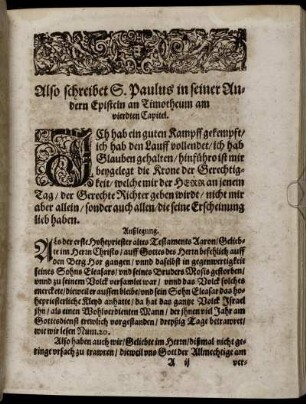 Also schreibet S. Paulus in seiner An-
dern Episteln an Timotheum am
vierdten Capitel.
ICh hab ein guten Kampff gekempfet/
ich hab den Lauff vollendet/ ich hab
Glauben gehalten/ hinfüro ist mir
beygelegt die Krone der Gerechtig-
keit/ welche mir der HERR an jenem
Tag/ der Gerechte Richter geben wirdt/ nicht mir
aber allein/ sonder auch allen/ die seine Erscheinung
lieb haben.
Außlegung.
Als der erste Hohepriester altes Testaments Aaron/ Gelieb-
te im Herrn Christo/ auff Gottes des Herrn befehlch auff
den Berg Hor gangen/ vnnd daselbst in gegenwertigkeit
seines Sohns Eleasars/ vnd seines Bruders Mosis gestorben/
vnnd zu seinem Volck versamlet war/ vnnd das Volck solches
mercket/ dieweil er aussen bleibe/ vnd sein Sohn Eleasar das ho-
hepriesterliche Kleyd anhatte/ da hat das gantze Volck Israel
jhn/ als einen Wohluerdienten Mann/ der jhnen viel Jahr am
Gottesdienst trewlich vorgestanden/ dreyßig Tage betrawret/
wie wir lesen Num. 20.
Also haben auch wir/ Geliebte im Herrn/ dißmal nicht ge-
ringe vrsach zu trawren/ dieweil vns Gott der Allmechtige am
A ij
ver-